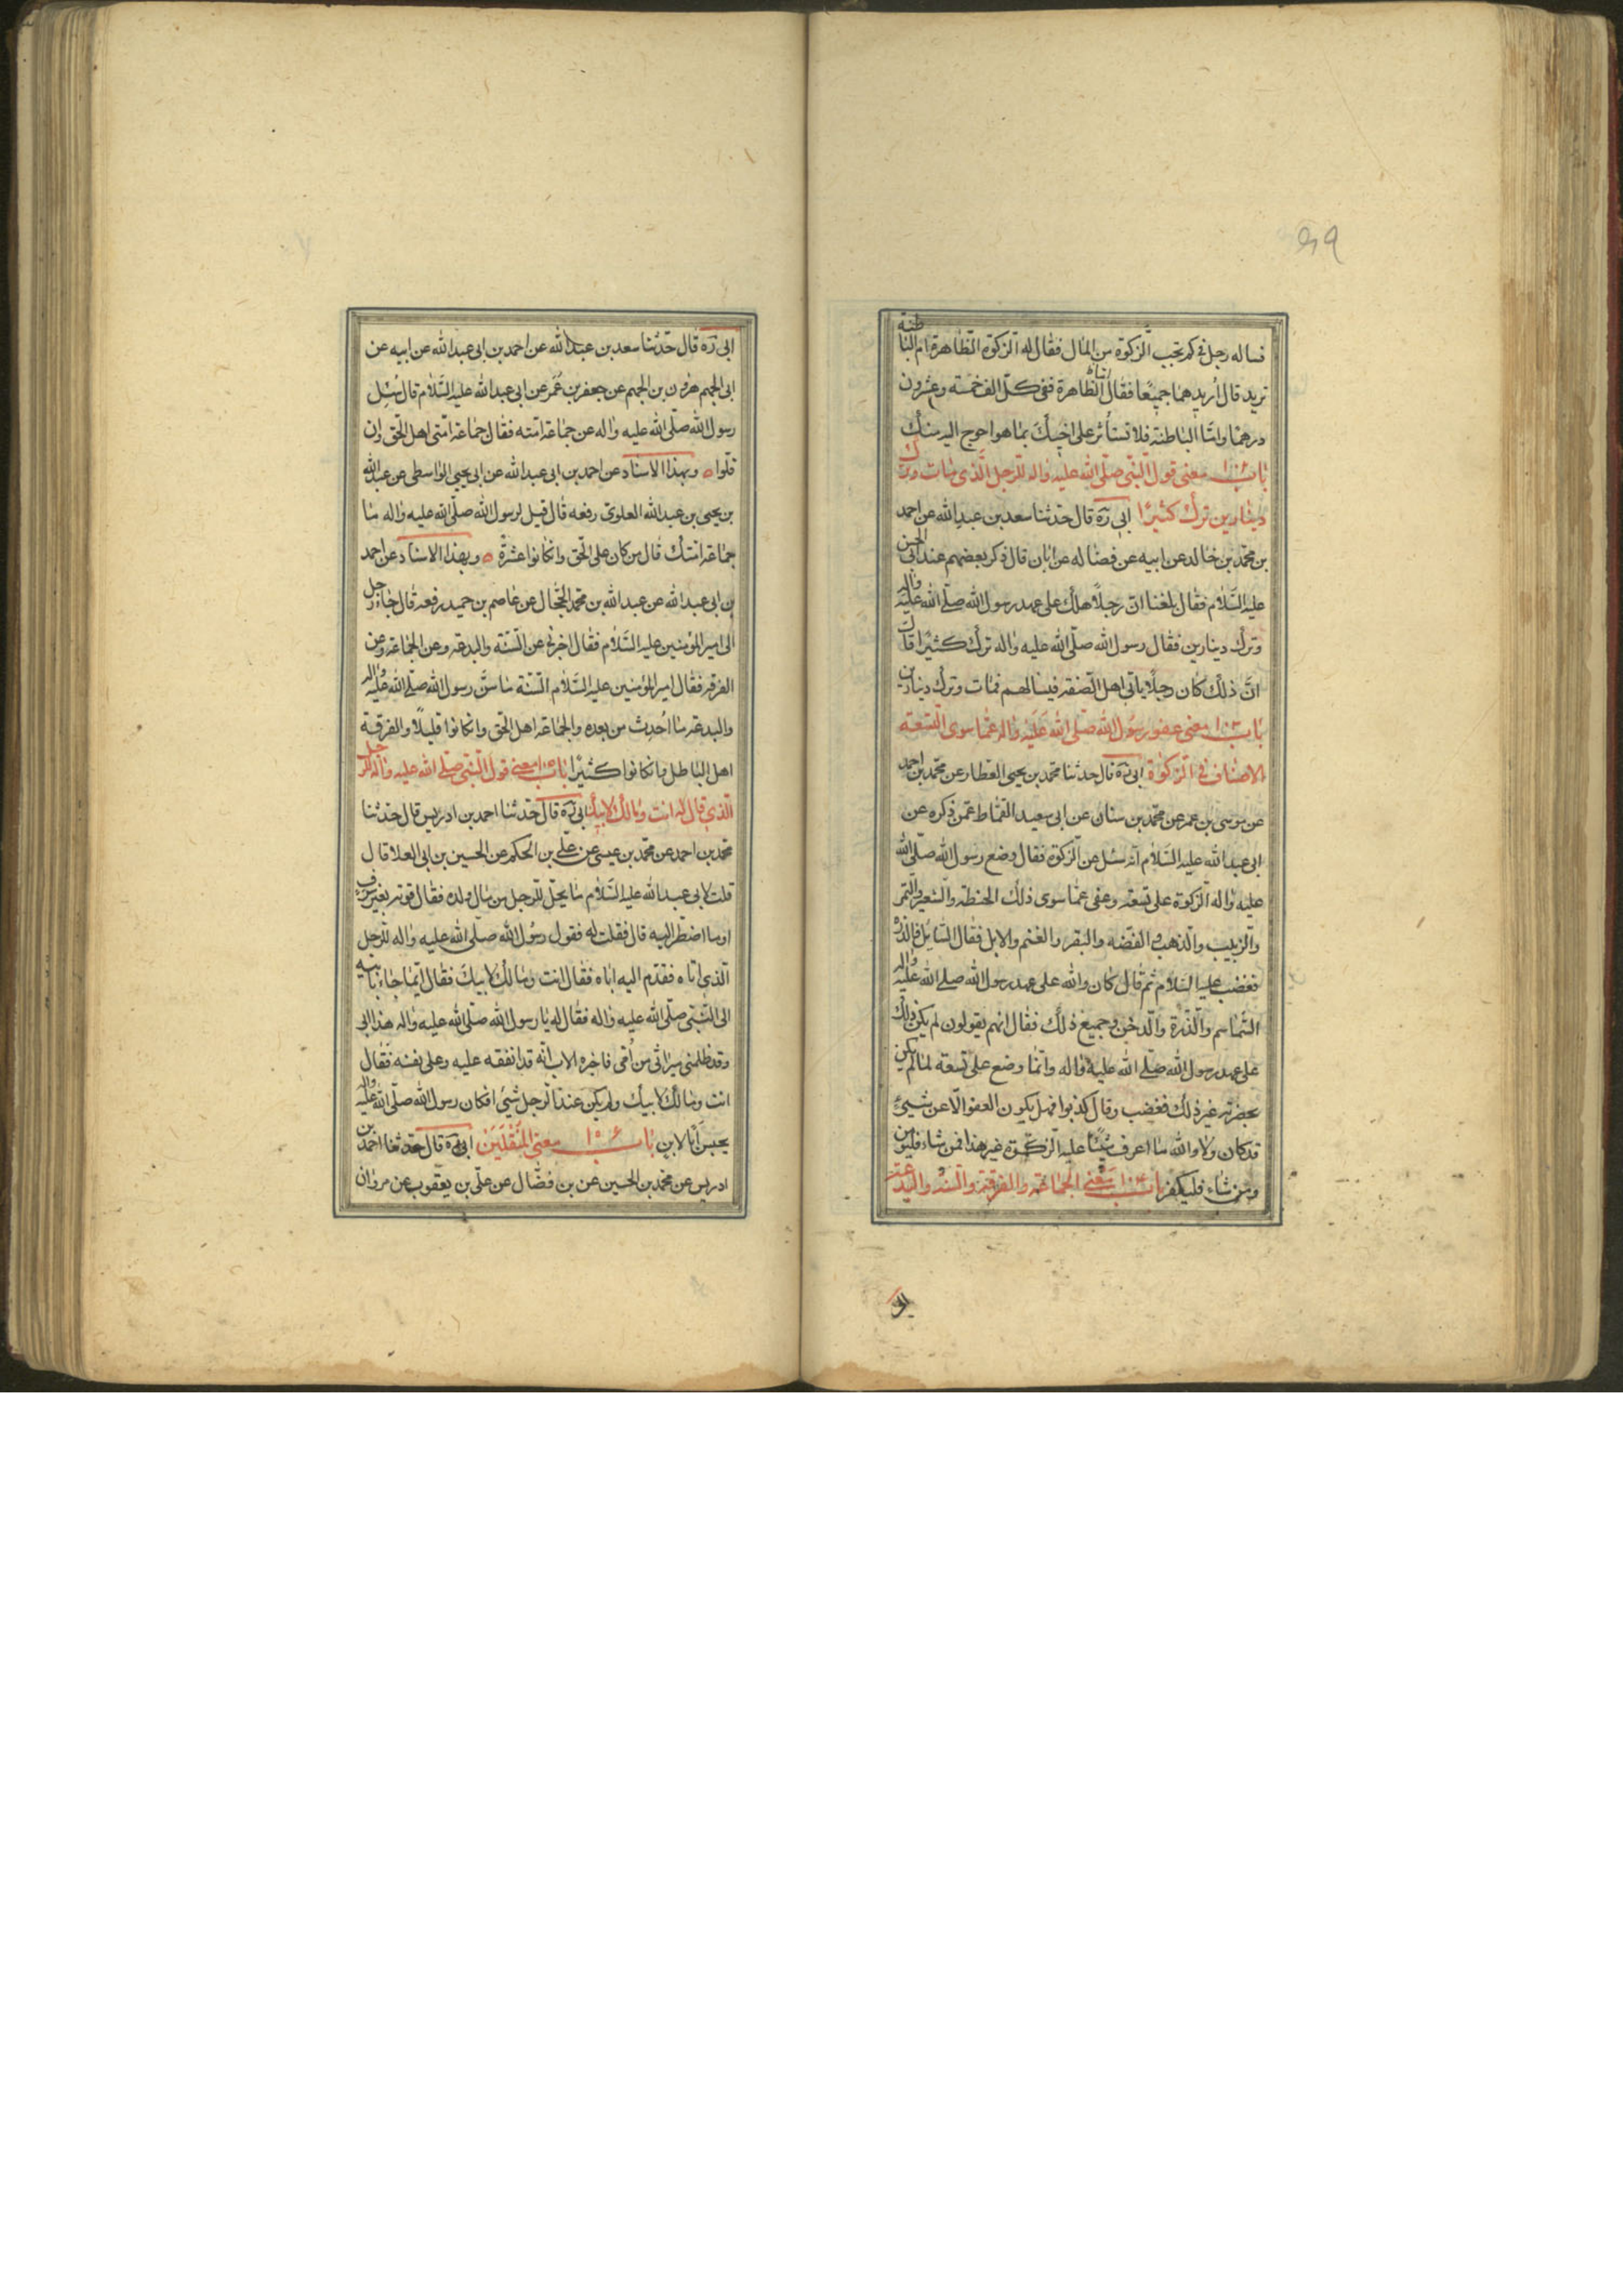 فساله رجل في كم تجب الزكوة من المال فقال له الزكوة الظاهرة ام الباطنة
تريد قال اريدهما جميعا فقال اما الظاهرة ففي كل الف خمسة وعشرون
درهما واما الباطنة فلا تستأثر على اخيك بما هو احوج اليه منك
باب ١٠٢ معنى قول النبي صلى الله عليه واله للرجل الذي مات وترك
دينارين ترك كثيرا ابي ره قال حدثنا سعد بن عبد الله عن احمد
بن محمد بن خالد عن ابيه عن فضاله عن ابان قال ذكر بعضهم عند ابي الحسن
عليه السلام فقال بلغنا ان رجلا هلك على عهد رسول الله صلى الله عليه واله
وترك دينارين فقال رسول الله صلى الله عليه واله ترك كثيرا قال
ان ذلك كان رجلا ياتي اهل الصفه فيسالهم فمات وترك دينارين
باب ١٠٣ معنى عفو رسول الله صلى الله عليه واله عما سوى التسعة
الاصناف في الزكوة ابي ره قال حدثنا محمد بن يحيى العطار عن محمد بن احمد
عن موسى بن عمر عن محمد بن سنان عن ابي سعيد القماط عمن ذكره عن
ابي عبد الله عليه السلام انه سئل عن الزكوة فقال وضع رسول الله صلى الله
عليه واله الزكوة على تسعة وعفى عما سوى ذلك الحنطة والشعير والتمر
والزبيب والذهب والفضه والبقر والغنم والابل فقال السائل فالذره
فغضب عليه السلام ثم قال كان والله على عهد رسول الله صلى الله عليه واله
السماسم والذرة والدخن وجميع ذلك فقال انهم يقولون لم يكن ذلك
على عهد رسول الله صلى الله عليه واله وانما وضع على تسعة لما لم يكن
بحضرته غير ذلك فغضب وقال كذبوا فهل يكون العفو الا عن شيئ
قد كان ولا والله ما اعرف شيئا عليه الزكوة غير هذا فمن شاء فليؤمن
ومن شاء فليكفر باب ١٠٤ معنى الجماعة والفرقة والسنه والبدعة
ابي ره قال حدثنا سعد بن عبد الله عن احمد بن ابي عبد الله عن ابيه عن
ابي الجهم هرون بن الجهم عن جعفر بن عمر عن ابي عبد الله عليه السلام قال سئل
رسول الله صلى الله عليه واله عن جماعة امته فقال جماعة امتي اهل الحق وان
قلوا ه وبهذا الاسناد عن احمد بن ابي عبد الله عن ابي يحيى الواسطي عن عبد الله
بن يحيى بن عبد الله العلوي رفعه قال قيل لرسول الله صلى الله عليه واله ما
جماعة امتك قال من كان على الحق وان كانوا عشرة ه وبهذا الاسناد عن احمد
بن ابي عبد الله عن عبد الله بن محمد الحجال عن عاصم بن حميد رفعه قال جاء رجل
الى امير المؤمنين عليه السلام فقال اخبرني عن السنة والبدعة وعن الجماعة وعن
الفرقة فقال امير المؤمنين عليه السلام السنة ما سن رسول الله صلى الله عليه واله
والبدعة ما احدث من بعده والجماعة اهل الحق وان كانوا قليلا والفرقة
اهل الباطل وان كانوا كثيرا باب ١٠٥ معنى قول النبي صلى الله عليه واله للرجل
الذي قال له انت ومالك لابيك ابي ره قال حدثنا احمد بن ادريس قال حدثنا
محمد بن احمد عن محمد بن عيسى عن علي بن الحكم عن الحسين بن ابي العلا قال
قلت لابي عبد الله عليه السلام ما يحل للرجل من مال ولده فقال قوته بغير سرف
اوما اضطر اليه قال فقلت له فقول رسول الله صلى الله عليه واله للرجل
الذي اتاه فقدم اليه اباه فقال انت ومالك لابيك فقال انما جاء بابيه
الى النبي صلى الله عليه واله فقال له يا رسول الله صلى الله عليه واله هذا ابي
وقد ظلمني ميراثي من امي فاخبره الاب انه قد انفقه عليه وعلى نفسه فقال
انت ومالك لابيك ولم يكن عند الرجل شيئ افكان رسول الله صلى الله عليه واله
يحبس ابا لابن باب ١٠٦ معنى المنقلين ابي ره قال حدثنا احمد بن
ادريس عن محمد بن الحسين عن بن فضال عن علي بن يعقوب عن مروان